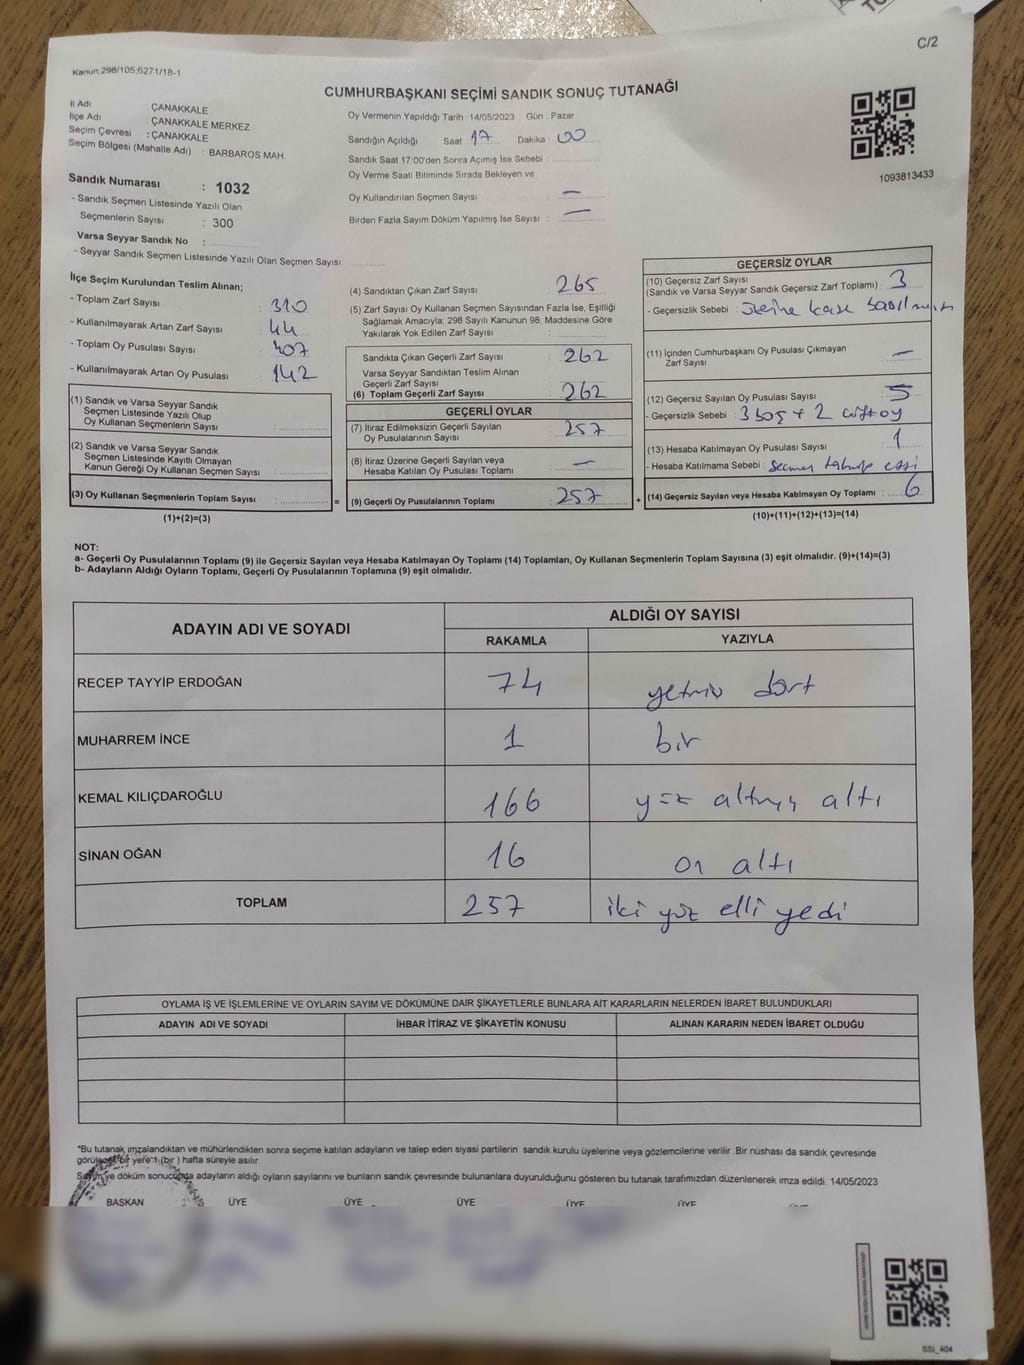 C/2
Kanun:298/105;6271/18-1
CUMHURBAŞKANI SEÇİMİ SANDIK SONUÇ TUTANAĞI
İl Adı : ÇANAKKALE
İlçe Adı : ÇANAKKALE MERKEZ
Seçim Çevresi : ÇANAKKALE
Seçim Bölgesi (Mahalle Adı) : BARBAROS MAH.
Sandık Numarası : 1032
- Sandık Seçmen Listesinde Yazılı Olan
Seçmenlerin Sayısı : 300
Varsa Seyyar Sandık No :
- Seyyar Sandık Seçmen Listesinde Yazılı Olan Seçmen Sayısı:
Oy Vermenin Yapıldığı Tarih : 14/05/2023 Gün : Pazar
Sandığın Açıldığı Saat 17 Dakika : 00
Sandık Saat 17:00'den Sonra Açımış İse Sebebi :
Oy Verme Saati Bitiminde Sırada Bekleyen ve
Oy Kullandırılan Seçmen Sayısı : —
Birden Fazla Sayım Döküm Yapılmış İse Sayısı : —
1093813433
İlçe Seçim Kurulundan Teslim Alınan;
- Toplam Zarf Sayısı : 310
- Kullanılmayarak Artan Zarf Sayısı : 44
- Toplam Oy Pusulası Sayısı : 407
- Kullanılmayarak Artan Oy Pusulası : 142
(1) Sandık ve Varsa Seyyar Sandık
Seçmen Listesinde Yazılı Olup
Oy Kullanan Seçmenlerin Sayısı :
(2) Sandık ve Varsa Seyyar Sandık
Seçmen Listesinde Kayıtlı Olmayan
Kanun Gereği Oy Kullanan Seçmen Sayısı :
(3) Oy Kullanan Seçmenlerin Toplam Sayısı : =
(1)+(2)=(3)
(4) Sandıktan Çıkan Zarf Sayısı : 265
(5) Zarf Sayısı Oy Kullanan Seçmen Sayısından Fazla İse, Eşitliği
Sağlamak Amacıyla; 298 Sayılı Kanunun 98. Maddesine Göre
Yakılarak Yok Edilen Zarf Sayısı :
Sandıkta Çıkan Geçerli Zarf Sayısı : 262
Varsa Seyyar Sandıktan Teslim Alınan
Geçerli Zarf Sayısı :
(6) Toplam Geçerli Zarf Sayısı : 262
GEÇERLİ OYLAR
(7) İtiraz Edilmeksizin Geçerli Sayılan
Oy Pusulalarının Sayısı : 257
(8) İtiraz Üzerine Geçerli Sayılan veya
Hesaba Katılan Oy Pusulası Toplamı : —
(9) Geçerli Oy Pusulalarının Toplamı : 257 +
GEÇERSİZ OYLAR
(10) Geçersiz Zarf Sayısı
(Sandık ve Varsa Seyyar Sandık Geçersiz Zarf Toplamı) : 3
- Geçersizlik Sebebi :
(11) İçinden Cumhurbaşkanı Oy Pusulası Çıkmayan
Zarf Sayısı : —
(12) Geçersiz Sayılan Oy Pusulası Sayısı : 5
- Geçersizlik Sebebi : 3 boş + 2 çift oy
(13) Hesaba Katılmayan Oy Pusulası Sayısı : 1
- Hesaba Katılmama Sebebi : seçmen
(14) Geçersiz Sayılan veya Hesaba Katılmayan Oy Toplamı : 6
(10)+(11)+(12)+(13)=(14)
NOT:
a- Geçerli Oy Pusulalarının Toplamı (9) ile Geçersiz Sayılan veya Hesaba Katılmayan Oy Toplamı (14) Toplamları, Oy Kullanan Seçmenlerin Toplam Sayısına (3) eşit olmalıdır. (9)+(14)=(3)
b- Adayların Aldığı Oyların Toplamı, Geçerli Oy Pusulalarının Toplamına (9) eşit olmalıdır.
ADAYIN ADI VE SOYADI ALDIĞI OY SAYISI
RAKAMLA YAZIYLA
RECEP TAYYİP ERDOĞAN 74 yetmiş dört
MUHARREM İNCE 1 bir
KEMAL KILIÇDAROĞLU 166 yüz altmış altı
SİNAN OĞAN 16 on altı
TOPLAM 257 iki yüz elli yedi
OYLAMA İŞ VE İŞLEMLERİNE VE OYLARIN SAYIM VE DÖKÜMÜNE DAİR ŞİKAYETLERLE BUNLARA AİT KARARLARIN NELERDEN İBARET BULUNDUKLARI
ADAYIN ADI VE SOYADI İHBAR İTİRAZ VE ŞİKAYETİN KONUSU ALINAN KARARIN NEDEN İBARET OLDUĞU
*Bu tutanak imzalandıktan ve mühürlendikten sonra seçime katılan adayların ve talep eden siyasi partilerin sandık kurulu üyelerine veya gözlemcilerine verilir. Bir nüshası da sandık çevresinde
görülecek bir yere 1 (bir) hafta süreyle asılır.
Sayım ve döküm sonucunda adayların aldığı oyların sayılarını ve bunların sandık çevresinde bulunanlara duyurulduğunu gösteren bu tutanak tarafımızdan düzenlenerek imza edildi. 14/05/2023
BAŞKAN ÜYE ÜYE ÜYE ÜYE ÜYE
SSI_404